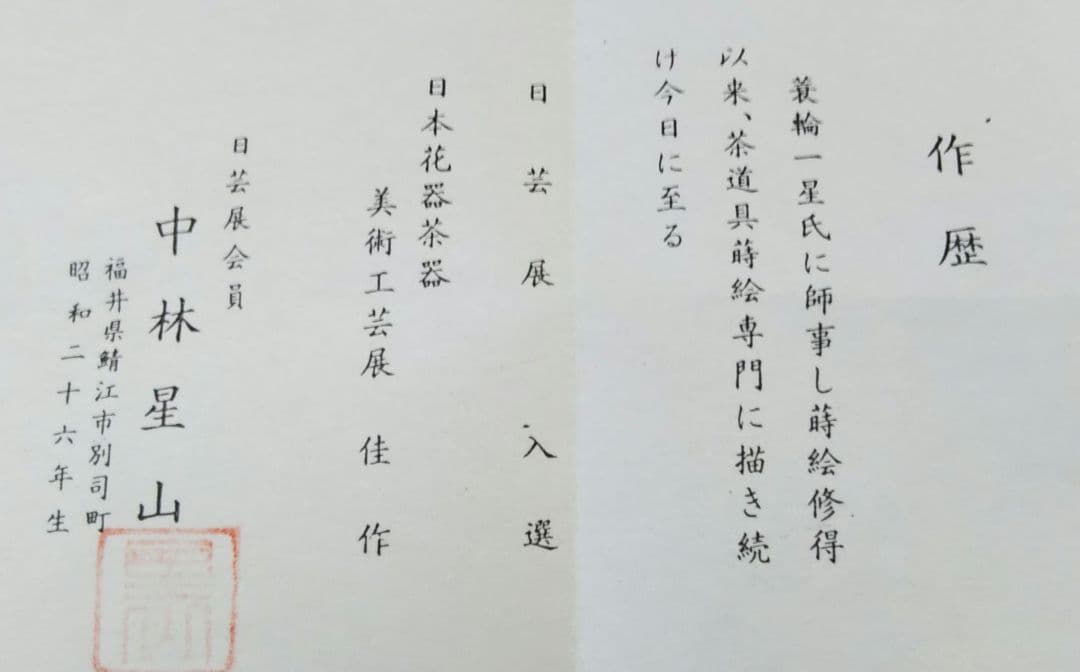 作歴
蓑輪一星氏に師事し蒔絵修得
以来、茶道具蒔絵専門に描き続
け今日に至る
日芸展 入選
日本花器茶器
美術工芸展 佳作
日芸展会員
中林星山
福井県鯖江市別司町
昭和二十六年生